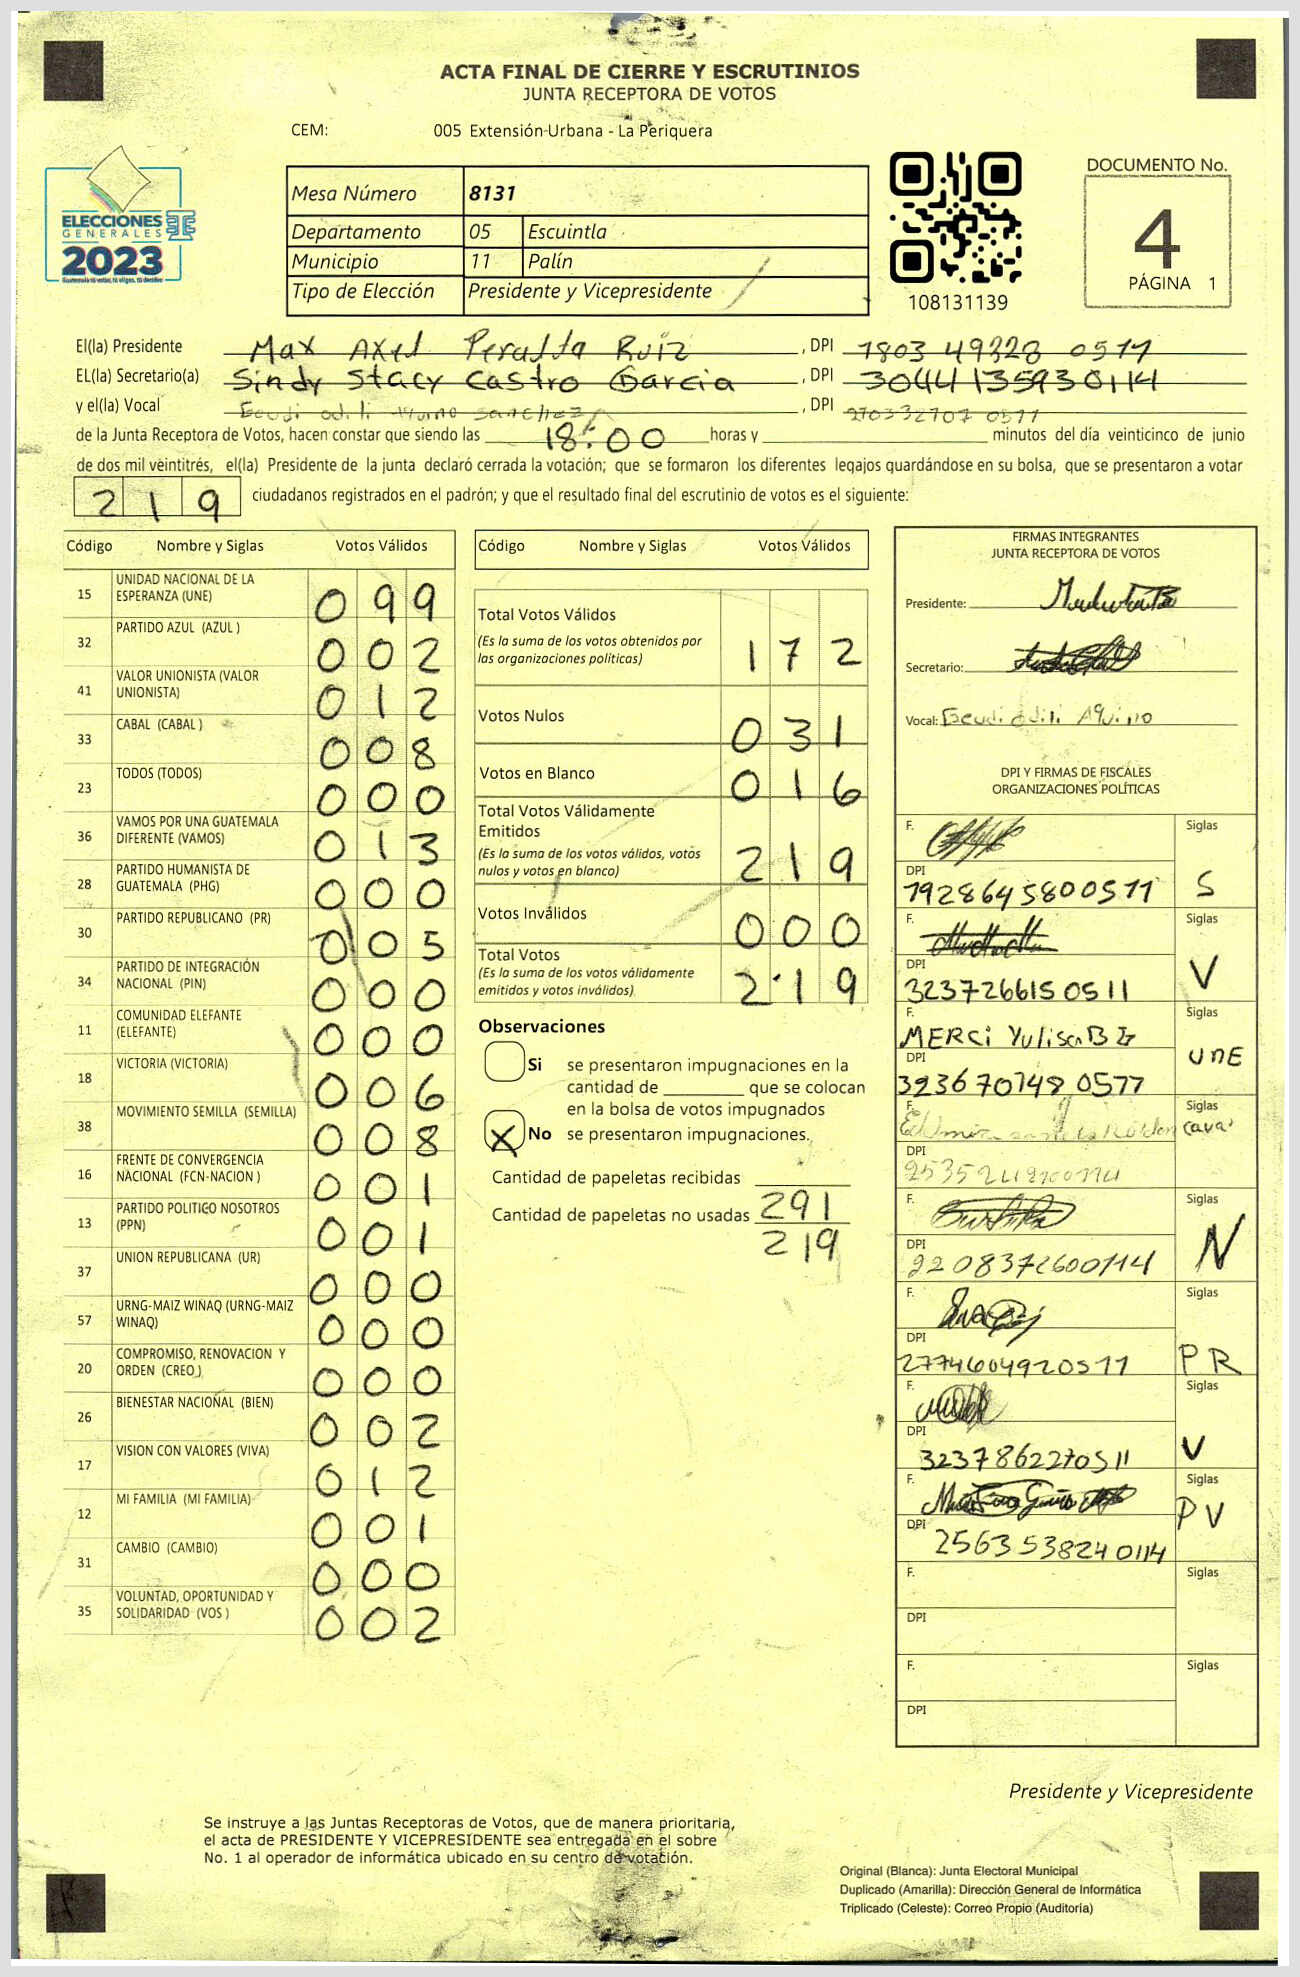 ACTA FINAL DE CIERRE Y ESCRUTINIOS
JUNTA RECEPTORA DE VOTOS
CEM: 005 Extensión Urbana - La Periquera
DOCUMENTO No.
4
PÁGINA 1
ELECCIONES
GENERALES
2023
Mesa Número 8131
Departamento 05 Escuintla
Municipio 11 Palín
Tipo de Elección Presidente y Vicepresidente
108131139
El(la) Presidente Max Axel Peralta Ruiz, DPI 1803 49328 0511
EL(la) Secretario(a) Sindy Stacy Castro Garcia, DPI 3044135930114
y el(la) Vocal, DPI
de la Junta Receptora de Votos, hacen constar que siendo las 18:00 horas y minutos del día veinticinco de junio
de dos mil veintitrés, el(la) Presidente de la junta declaró cerrada la votación; que se formaron los diferentes legajos quardándose en su bolsa, que se presentaron a votar
219 ciudadanos registrados en el padrón; y que el resultado final del escrutinio de votos es el siguiente:
Código Nombre y Siglas Votos Válidos
15 UNIDAD NACIONAL DE LA ESPERANZA (UNE) 099
32 PARTIDO AZUL (AZUL ) 002
41 VALOR UNIONISTA (VALOR UNIONISTA) 012
33 CABAL (CABAL ) 008
23 TODOS (TODOS) 000
36 VAMOS POR UNA GUATEMALA DIFERENTE (VAMOS) 013
28 PARTIDO HUMANISTA DE GUATEMALA (PHG) 000
30 PARTIDO REPUBLICANO (PR) 005
34 PARTIDO DE INTEGRACIÓN NACIONAL (PIN) 000
11 COMUNIDAD ELEFANTE (ELEFANTE) 000
18 VICTORIA (VICTORIA) 006
38 MOVIMIENTO SEMILLA (SEMILLA) 008
16 FRENTE DE CONVERGENCIA NACIONAL (FCN-NACION ) 001
13 PARTIDO POLITICO NOSOTROS (PPN) 001
37 UNION REPUBLICANA (UR) 000
57 URNG-MAIZ WINAQ (URNG-MAIZ WINAQ) 000
20 COMPROMISO, RENOVACION Y ORDEN (CREO ) 000
26 BIENESTAR NACIONAL (BIEN) 002
17 VISION CON VALORES (VIVA) 012
12 MI FAMILIA (MI FAMILIA) 001
31 CAMBIO (CAMBIO) 000
35 VOLUNTAD, OPORTUNIDAD Y SOLIDARIDAD (VOS ) 002
Código Nombre y Siglas Votos Válidos
Total Votos Válidos 172
(Es la suma de los votos obtenidos por
las organizaciones politicas)
Votos Nulos 031
Votos en Blanco 016
Total Votos Válidamente
Emitidos 219
(Es la suma de los votos válidos, votos
nulos y votos en blanco)
Votos Inválidos 000
Total Votos 219
(Es la suma de los votos válidamente
emitidos y votos inválidos)
Observaciones
Si se presentaron impugnaciones en la
cantidad de ________ que se colocan
en la bolsa de votos impugnados
X No se presentaron impugnaciones.
Cantidad de papeletas recibidas
291
Cantidad de papeletas no usadas
219
FIRMAS INTEGRANTES
JUNTA RECEPTORA DE VOTOS
Presidente:
Secretario:
Vocal:
DPI Y FIRMAS DE FISCALES
ORGANIZACIONES POLÍTICAS
F. Siglas S
DPI 1928645800511
F. Siglas V
DPI 3237266150511
F. MERCi Yulisa Siglas UNE
DPI 3236707480511
F. Siglas
DPI
F. Siglas N
DPI 2208372600114
F. Siglas PR
DPI 2774604920511
F. Siglas V
DPI 3237862270511
F. Siglas PV
DPI 2563538240114
F. Siglas
DPI
F. Siglas
DPI
Presidente y Vicepresidente
Se instruye a las Juntas Receptoras de Votos, que de manera prioritaria,
el acta de PRESIDENTE Y VICEPRESIDENTE sea entregada en el sobre
No. 1 al operador de informática ubicado en su centro de votación.
Original (Blanca): Junta Electoral Municipal
Duplicado (Amarilla): Dirección General de Informática
Triplicado (Celeste): Correo Propio (Auditoría)